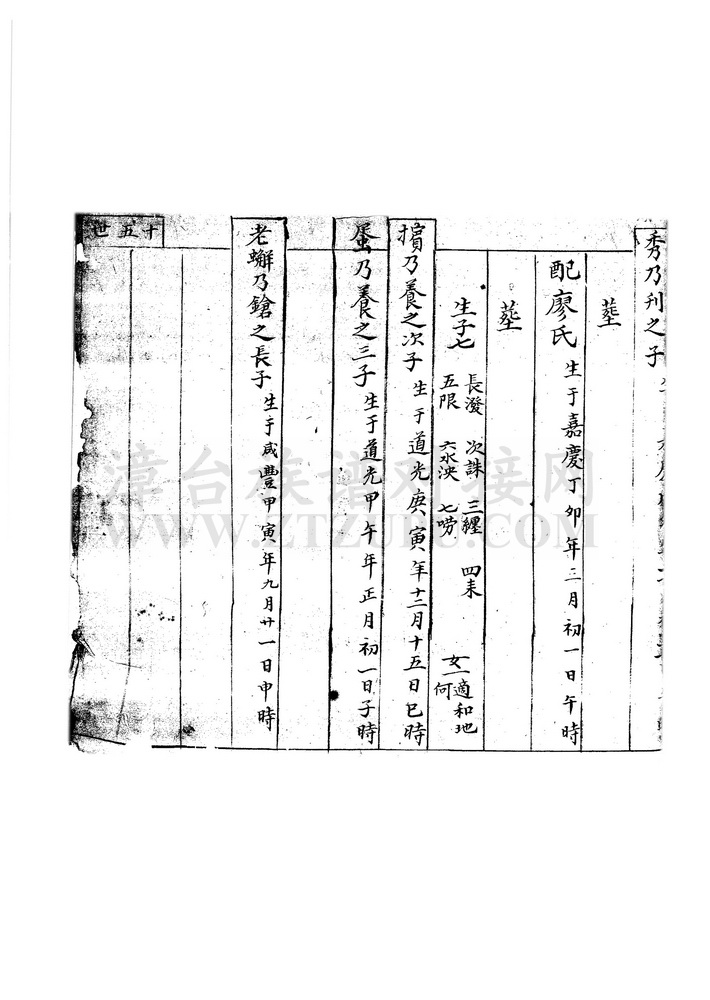 秀乃刋之子
塟
配廖氏 生于嘉慶丁卯年三月初一日午時
塟
生子七 長潑 次誅 三纒 四耒 五限 六水泱 七嘮 女一適和地何
擯乃養之次子 生于道光庚寅年十二月十五日巳時
蜃乃養之三子 生于道光甲午年正月初一日子時
老蠏乃鎗之長子 生于咸豐甲寅年九月廿一日申時
十五世
漳台族谱对接网
WWW.ZTZUPU.COM